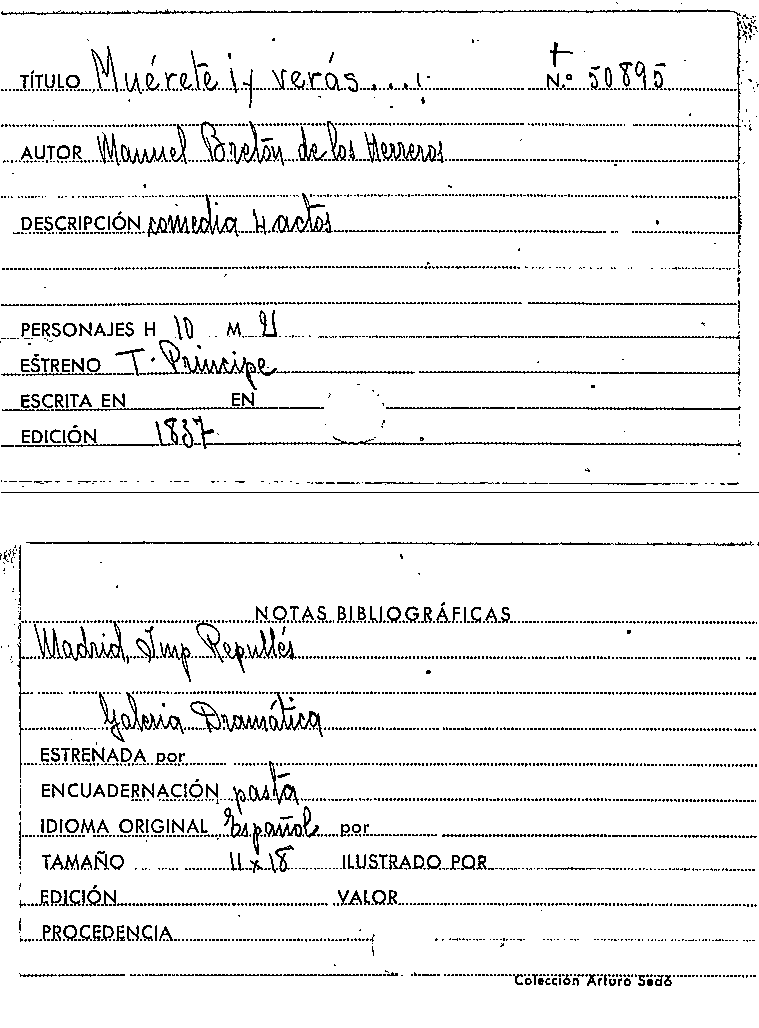 TÍTULO Muérete ¡y verás...!
+
N.º 50895
AUTOR Manuel Bretón de los Herreros
DESCRIPCIÓN comedia 4 actos
PERSONAJES H 10 M
ESTRENO T. Principe
ESCRITA EN EN
EDICIÓN 1837
NOTAS BIBLIOGRÁFICAS
Madrid, Imp Repullés
Galeria Dramática
ESTRENADA por
ENCUADERNACIÓN pasta
IDIOMA ORIGINAL Español por
TAMAÑO 11 x 18 ILUSTRADO POR
EDICIÓN VALOR
PROCEDENCIA
Colección Arturo Sedó